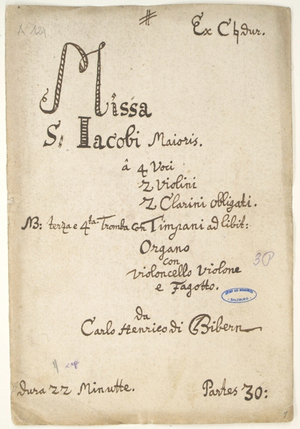 A 124
Ex C♮dur.
Missa
S: Iacobi Maioris.
â 4 Voci
2 Violini
2 Clarini obligati.
NB: terza e 4ta Tromba con Timpani ad libit:
Organo
con
Violoncello Violone
e Fagotto.
da
Carlo Henrico di Bibern
Dura 22 Minutte.
Partes 30: